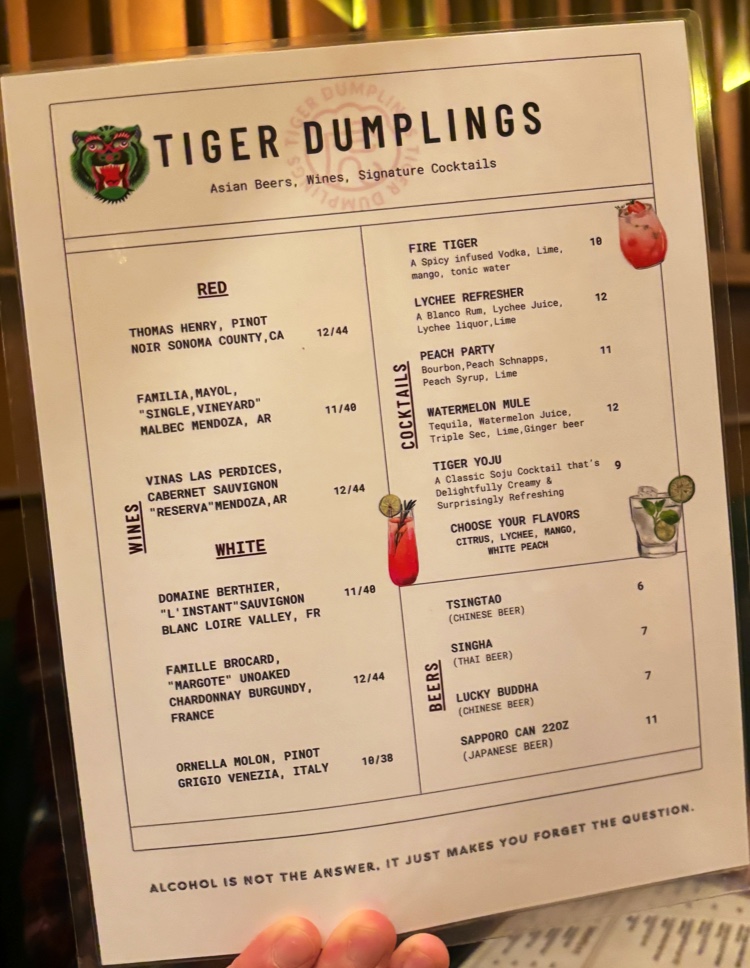 TIGER DUMPLINGS
TIGER DUMPLINGS TIGER DUMPLINGS
Asian Beers, Wines, Signature Cocktails
WINES
RED
THOMAS HENRY, PINOT
NOIR SONOMA COUNTY,CA 12/44
FAMILIA,MAYOL,
"SINGLE,VINEYARD" 11/40
MALBEC MENDOZA, AR
VINAS LAS PERDICES,
CABERNET SAUVIGNON 12/44
"RESERVA"MENDOZA,AR
WHITE
DOMAINE BERTHIER, 11/40
"L'INSTANT"SAUVIGNON
BLANC LOIRE VALLEY, FR
FAMILLE BROCARD,
"MARGOTE" UNOAKED 12/44
CHARDONNAY BURGUNDY,
FRANCE
ORNELLA MOLON, PINOT 10/38
GRIGIO VENEZIA, ITALY
COCKTAILS
FIRE TIGER 10
A Spicy infused Vodka, Lime,
mango, tonic water
LYCHEE REFRESHER 12
A Blanco Rum, Lychee Juice,
Lychee liquor,Lime
PEACH PARTY 11
Bourbon,Peach Schnapps,
Peach Syrup, Lime
WATERMELON MULE 12
Tequila, Watermelon Juice,
Triple Sec, Lime,Ginger beer
TIGER YOJU 9
A Classic Soju Cocktail that's
Delightfully Creamy &
Surprisingly Refreshing
CHOOSE YOUR FLAVORS
CITRUS, LYCHEE, MANGO,
WHITE PEACH
BEERS
TSINGTAO 6
(CHINESE BEER)
SINGHA 7
(THAI BEER)
LUCKY BUDDHA 7
(CHINESE BEER)
SAPPORO CAN 22OZ 11
(JAPANESE BEER)
ALCOHOL IS NOT THE ANSWER. IT JUST MAKES YOU FORGET THE QUESTION.